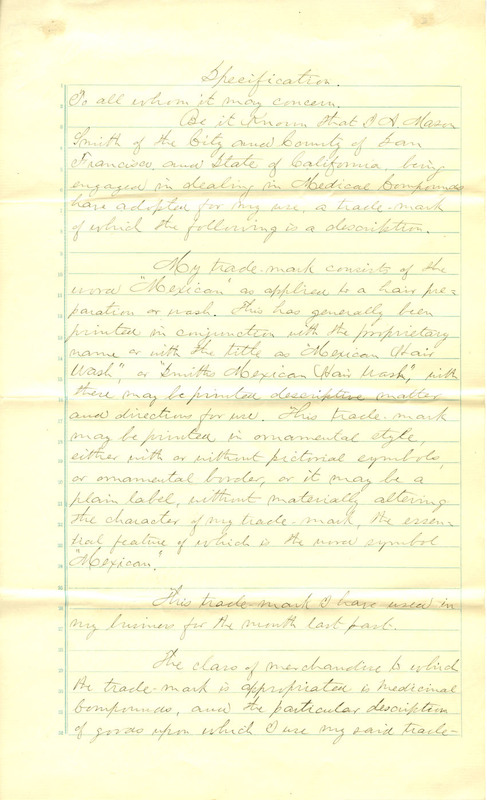 Specification.
To all whom it may concern.
Be it Known that I A. Mason
Smith of the City and County of San
Francisco and State of California, being
engaged in dealing in Medical Compounds
have adopted for my use, a trade-mark
of which the following is a description.
My trade-mark consists of the
word "Mexican" as applied to a hair pre-
paration or wash. This has generally been
printed in conjunction with the proprietary
name or with the title as "Mexican Hair
Wash", or "Smiths Mexican Hair Wash", with
there may be printed descriptive matter
and directions for use. This trade-mark
may be printed in ornamental style,
either with or without pictorial symbols,
or ornamental border, or it may be a
plain label, without materially altering
the character of my trade-mark, the essen-
tial feature of which is the word symbol
"Mexican".
This trade-mark I have used in
my business for the month last past.
The class of merchandise to which
the trade-mark is appropriated is medicinal
compounds, and the particular description
of goods upon which I use my said trade-